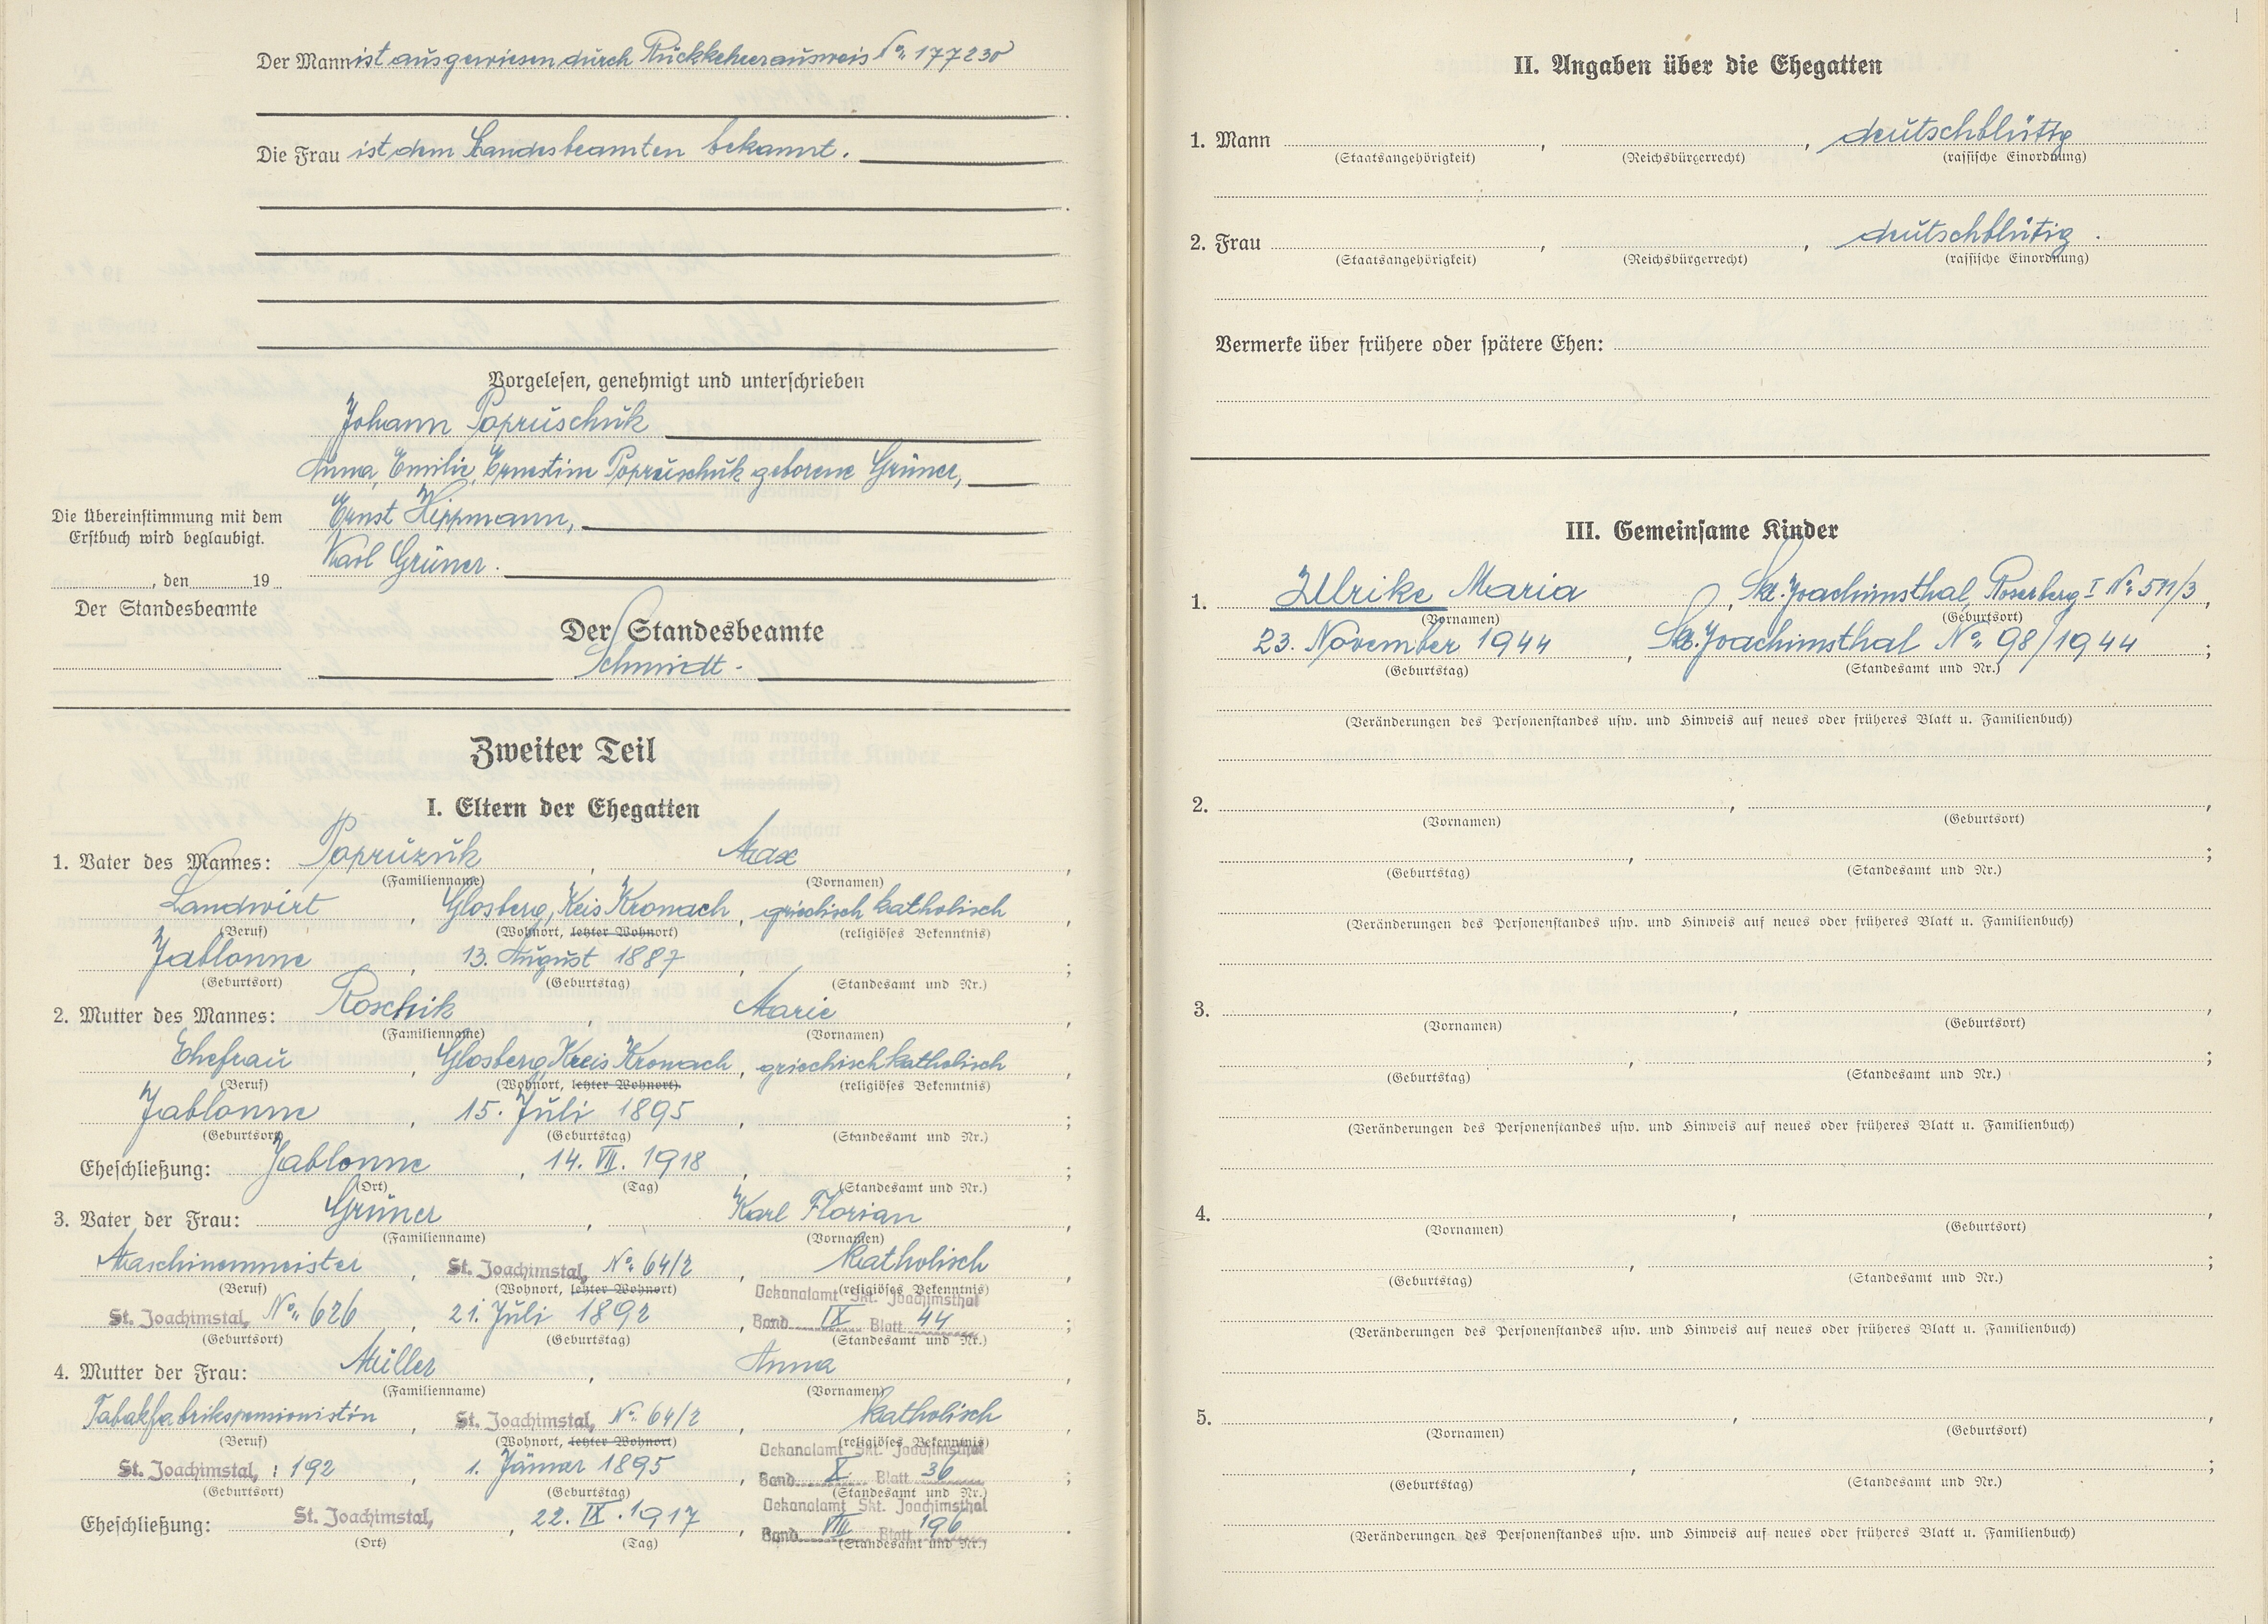 Der Mann ist ausgewiesen durch Rückkeherausweis No. 177230
Die Frau ist dem Standesbeamten bekannt.
Vorgelesen, genehmigt und unterschrieben
Johann Popruschuk
Anna, Emilie, Ernestine Popruschuk geborene Grüner,
Ernst Hippmann,
Karl Grüner.
Die Übereinstimmung mit dem
Erstbuch wird beglaubigt.
, den 19
Der Standesbeamte
Der Standesbeamte
Schmidt.
Zweiter Teil
I. Eltern der Ehegatten
1. Vater des Mannes: Popruzuk, Max,
(Familienname) (Vornamen)
Landwirt, Glosberg, Keis Kronach, griechisch katholisch,
(Beruf) (Wohnort, letzter Wohnort) (religiöses Bekenntnis)
Jablonne, 13. August 1887, ;
(Geburtsort) (Geburtstag) (Standesamt und Nr.)
2. Mutter des Mannes: Roschik, Marie,
(Familienname) (Vornamen)
Ehefrau, Glosberg, Kreis Kronach, griechisch katholisch,
(Beruf) (Wohnort, letzter Wohnort) (religiöses Bekenntnis)
Jablonne, 15. Juli 1895, ;
(Geburtsort) (Geburtstag) (Standesamt und Nr.)
Eheschließung: Jablonne, 14. VII. 1918, ;
(Ort) (Tag) (Standesamt und Nr.)
3. Vater der Frau: Grüner, Karl Florian,
(Familienname) (Vornamen)
Maschinenmeister, St. Joachimstal, No. 64/2, katholisch,
(Beruf) (Wohnort, letzter Wohnort) (religiöses Bekenntnis)
Dekanalamt Skt. Joachimsthal
St. Joachimstal, No. 626, 21. Juli 1892, Band IX Blatt 44;
(Geburtsort) (Geburtstag) (Standesamt und Nr.)
4. Mutter der Frau: Müller, Anna,
(Familienname) (Vornamen)
Tabakfabrikspensionistin, St. Joachimstal, No. 64/2, katholisch,
(Beruf) (Wohnort, letzter Wohnort) (religiöses Bekenntnis)
Dekanalamt Skt. Joachimsthal
St. Joachimstal, : 192, 1. Jänner 1895, Band X Blatt 36;
(Geburtsort) (Geburtstag) (Standesamt und Nr.)
Dekanalamt Skt. Joachimsthal
Eheschließung: St. Joachimstal, , 22. IX. 1917, Band VIII Blatt 196.
(Ort) (Tag) (Standesamt und Nr.)
II. Angaben über die Ehegatten
1. Mann , , deutschblütig
(Staatsangehörigkeit) (Reichsbürgerrecht) (rassische Einordnung)
2. Frau , , deutschblütig.
(Staatsangehörigkeit) (Reichsbürgerrecht) (rassische Einordnung)
Vermerke über frühere oder spätere Ehen:
III. Gemeinsame Kinder
1. Ulrike Maria, Skt. Joachimsthal, Roserberg I No. 511/3,
(Vornamen) (Geburtsort)
23. November 1944, Skt. Joachimsthal No. 98/1944;
(Geburtstag) (Standesamt und Nr.)
(Veränderungen des Personenstandes usw. und Hinweis auf neues oder früheres Blatt u. Familienbuch)
2. , ,
(Vornamen) (Geburtsort)
, ;
(Geburtstag) (Standesamt und Nr.)
(Veränderungen des Personenstandes usw. und Hinweis auf neues oder früheres Blatt u. Familienbuch)
3. , ,
(Vornamen) (Geburtsort)
, ;
(Geburtstag) (Standesamt und Nr.)
(Veränderungen des Personenstandes usw. und Hinweis auf neues oder früheres Blatt u. Familienbuch)
4. , ,
(Vornamen) (Geburtsort)
, ;
(Geburtstag) (Standesamt und Nr.)
(Veränderungen des Personenstandes usw. und Hinweis auf neues oder früheres Blatt u. Familienbuch)
5. , ,
(Vornamen) (Geburtsort)
, ;
(Geburtstag) (Standesamt und Nr.)
(Veränderungen des Personenstandes usw. und Hinweis auf neues oder früheres Blatt u. Familienbuch)